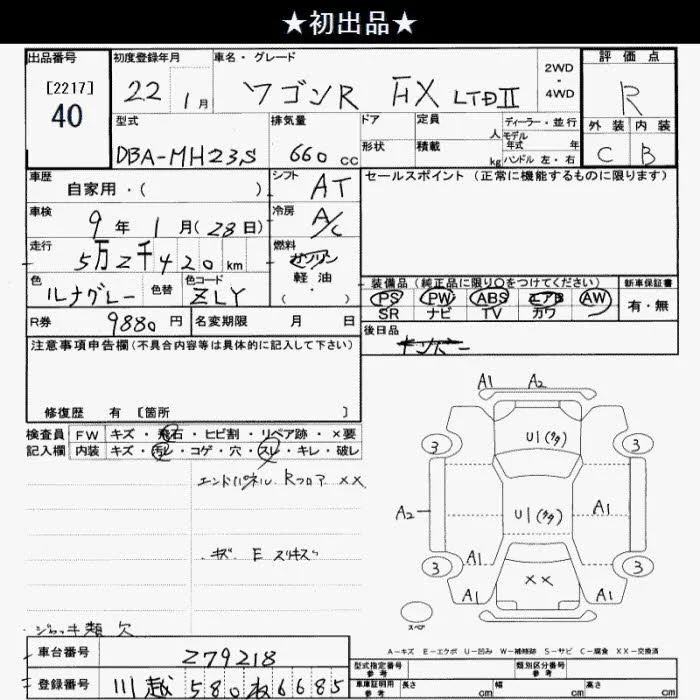 ★初出品★
出品番号 初度登録年月 車名・グレード 2WD・4WD 評価点
[2217] 40 22 1月 ワゴンR FX LTDII R
型式 排気量 ドア 定員 人 ディーラー・並行 外装 内装
DBA-MH23S 660 cc 形状 積載 kg モデル年式 年 ハンドル 左・右 C B
車歴 自家用・( ) シフト AT セールスポイント (正常に機能するものに限ります)
車検 9年 1月(28日) 冷房 A/C
走行 5万2千420km 燃料 ガソリン 軽油 ( ・ )
色 ルナグレー 色替 色コード ZLY
装備品 (純正品に限り〇をつけてください) 新車保証書
PS PW ABS エアB AW 有・無
SR ナビ TV カワ
R券 9880円 名変期限 月 日 後日品
注意事項申告欄(不具合内容等は具体的に記入して下さい)
修復歴 有 [箇所 ]
検査員 FW キズ・飛石・ヒビ割・リペア跡・×要
記入欄 内装 キズ・汚レ・コゲ・穴・スレ・キレ・破レ
エンドパネル Rフロア XX
キズ E スリキズ
ジャッキ類 欠
A1 A2
3 U1(タタ) 3
A2 U1(タタ) A1
A1
3 XX 3
A1 A1
スペア
A-キズ E-エクボ U-凹み W-補修跡 S-サビ C-腐食 XX-交換済
車台番号 Z79218
型式指定番号 参考 類別区分番号 参考
登録番号 川越 580 6685
車庫証明用 参考 長さ cm 幅 cm 高さ cm